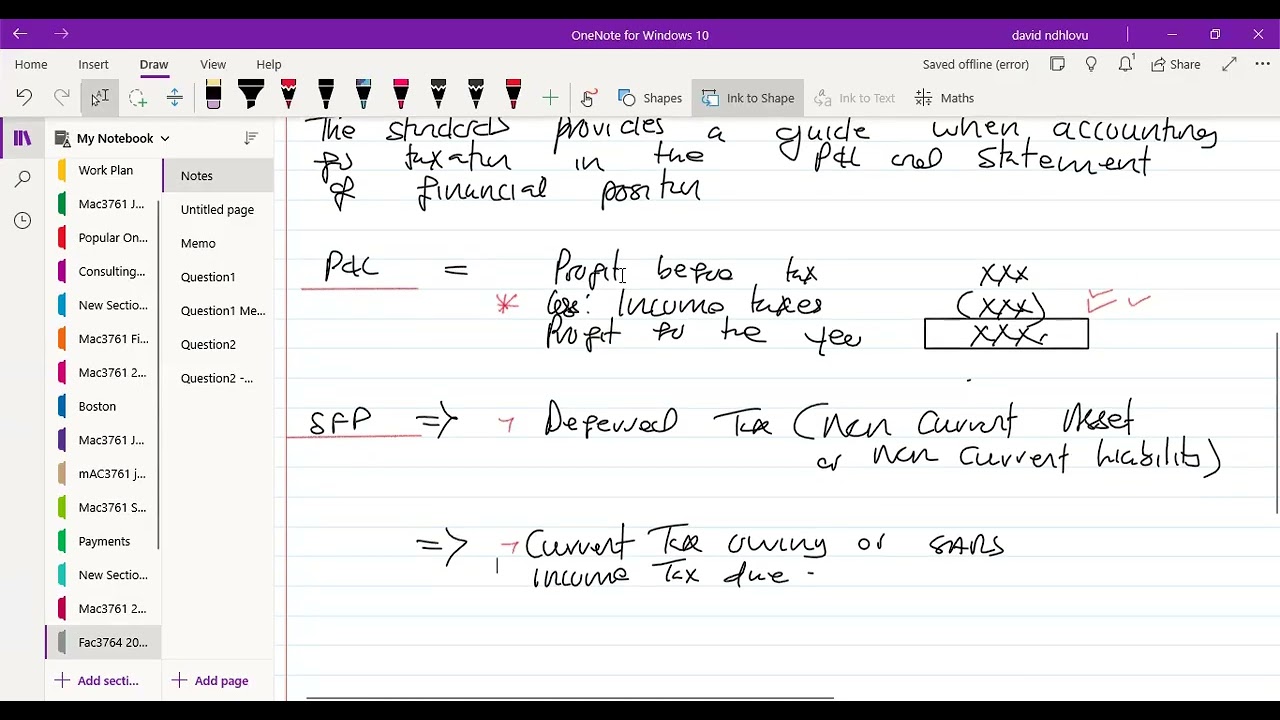 OneNote for Windows 10
david ndhlovu
Home
Insert
Draw
View
Help
Saved offline (error)
Share
Shapes
Ink to Shape
Ink to Text
Maths
My Notebook
Work Plan
Mac3761 J...
Popular On...
Consulting...
New Sectio...
Mac3761 Fi...
Mac3761 2...
Boston
Mac3761 J...
mAC3761 j...
Mac3761 S...
Payments
New Sectio...
Mac3761 2...
Fac3764 20...
Add secti...
Notes
Untitled page
Memo
Question1
Question1 Me...
Question2
Question2 -...
Add page
The standards provides a guide when accounting
for taxation in the P&L and statement
of financial position
P&L = Profit before tax xxx
* Less: Income taxes (xxx)
Profit for the year xxx
SFP => Deferred Tax (Non Current Asset
or non current liability)
=> Current Tax owing or SARS
income Tax due